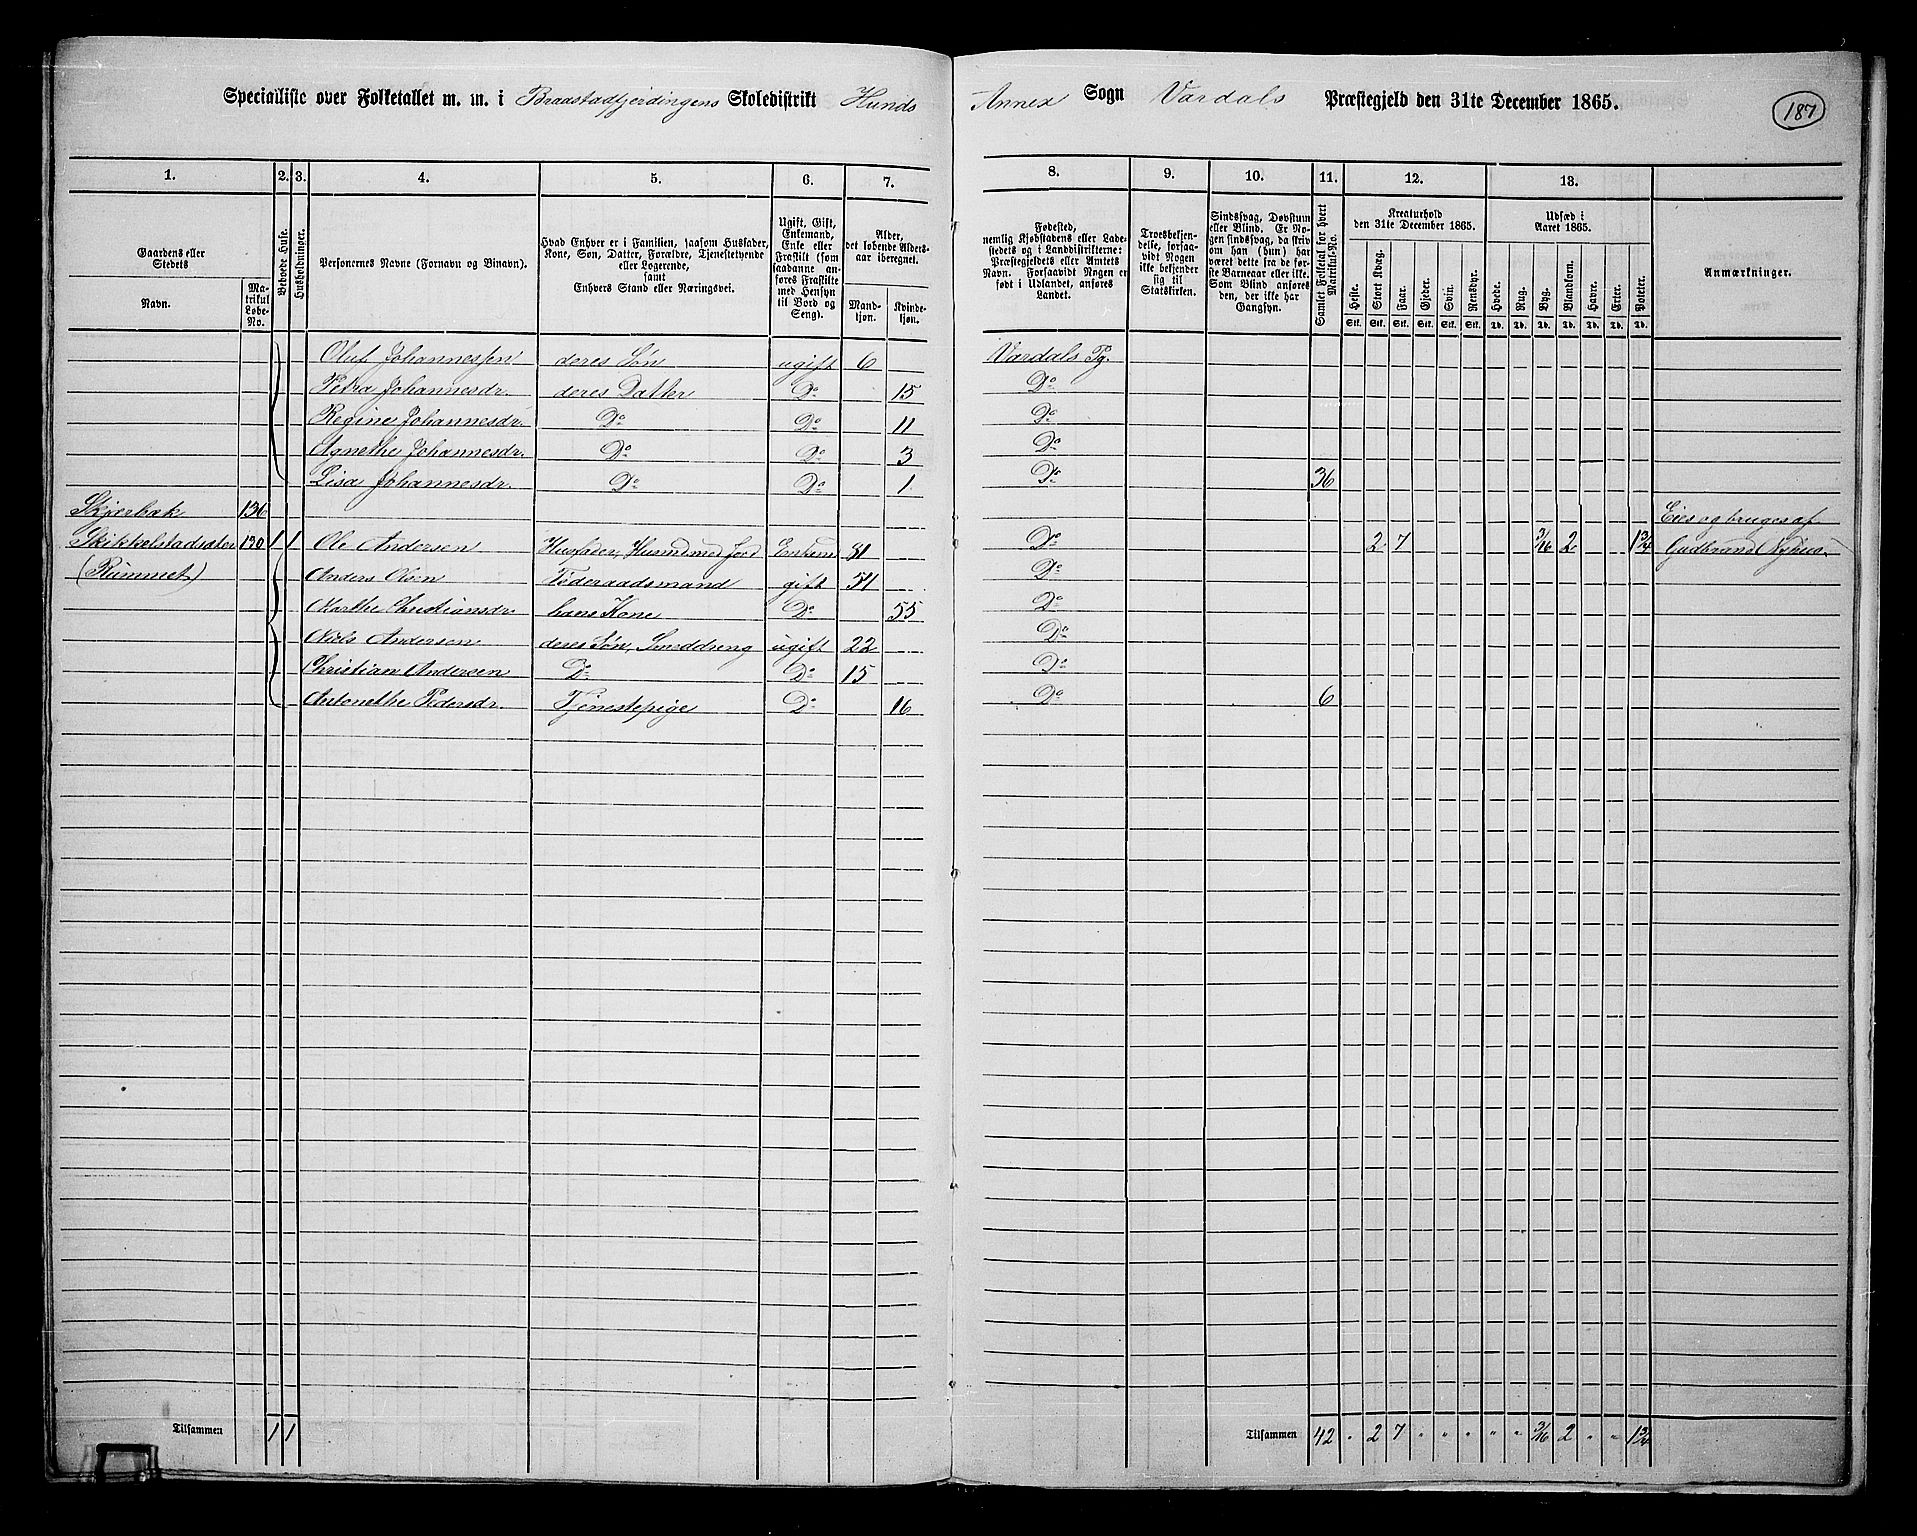 Specialliste over Folketallet m. m. i Braastadfjerdingens Skoledistrikt Hunds Annex Sogn Vardals Præstegjeld den 31te December 1865.
187
1. 2. 3. 4. 5. 6. 7. 8. 9. 10. 11. 12. 13.
Gaardens eller Stedets
Navn.
Matrikul Løbe-No.
Beboede Huse.
Husholdninger.
Personernes Navne (Fornavn og Binavn).
Hvad Enhver er i Familien, saasom Husfader, Kone, Søn, Datter, Forældre, Tjenestetyende eller Logerende, samt Enhvers Stand eller Næringsvei.
Ugift, Gift, Enkemand, Enke eller Fraskilt (som saadanne anføres Fraskilte med Hensyn til Bord og Seng).
Alder, det løbende Alders-aar iberegnet.
Mandkjøn.
Kvindekjøn.
Fødested, nemlig Kjøbstadens eller Ladestedets og i Landdistrikterne: Præstegjeldets eller Amtets Navn. Forsaavidt Nogen er født i Udlandet, anføres Landet.
Troesbekjendelse, forsaavidt Nogen ikke bekjender sig til Statskirken.
Sindssvag, Døvstum eller Blind. Er Nogen sindssvag, da skrives om han (hun) har været dette fra de første Barneaar eller ikke. Som Blind anføres den, der ikke har Gangsyn.
Samlet Folketal for hvert Matrikul-No.
Kreaturhold den 31te December 1865.
Heste. Stort Kvæg. Faar. Gjeder. Svin. Rensdyr.
Stk. Stk. Stk. Stk. Stk. Stk.
Udsæd i Aaret 1865.
Hvede. Rug. Byg. Blandkorn. Havre. Erter. Poteter.
Td. Td. Td. Td. Td. Td. Td.
Anmærkninger.
Oluf Johannessen deres Søn ugift 6 Vardals Pg.
Petra Johannesdr. deres Datter Do 15 Do
Regine Johannesdr. Do Do 11 Do
Agnethe Johannesdr. Do Do 3 Do
Lisa Johannesdr. Do Do 1 Do 36
Skjerbak 136 Eies og bruges af
Skikkelstadsæter 130 1 1 Ole Andersen Husfader, Husmd med Jord Enkem 81 Do 2 7 3/16 2 1 3/4 Gudbrand Nyhus.
(Rummet) Anders Olsen Føderaadsmand gift 54 Do
Marthe Christiansdr. hans Kone Do 55 Do
Niels Andersen deres Søn, Smeddreng ugift 22 Do
Christian Andersen Do Do 15 Do
Antonethe Pedersdr. Tjenestepige Do 16 Do 6
Tilsammen 1 1 Tilsammen 42 " 2 7 " " " " " 3/16 2 " " 1 3/4